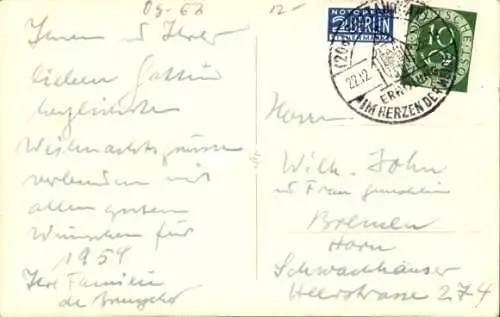 09-63
12-
Ihnen u Ihrer
lieben Gattin
herzlichste
Weihnachtsgrüsse
verbunden mit
allen guten
Wünschen für
1954
Ihre Familie
de
NOTOPFER
2 BERLIN
STEUERMARKE
DEUTSCHE
10
(20a)
22.12.
IM HERZEN DER
Herrn
Wilh. John
u Frau Gemahlin
Bremen
Horn
Schwachhauser
Heerstrasse 274